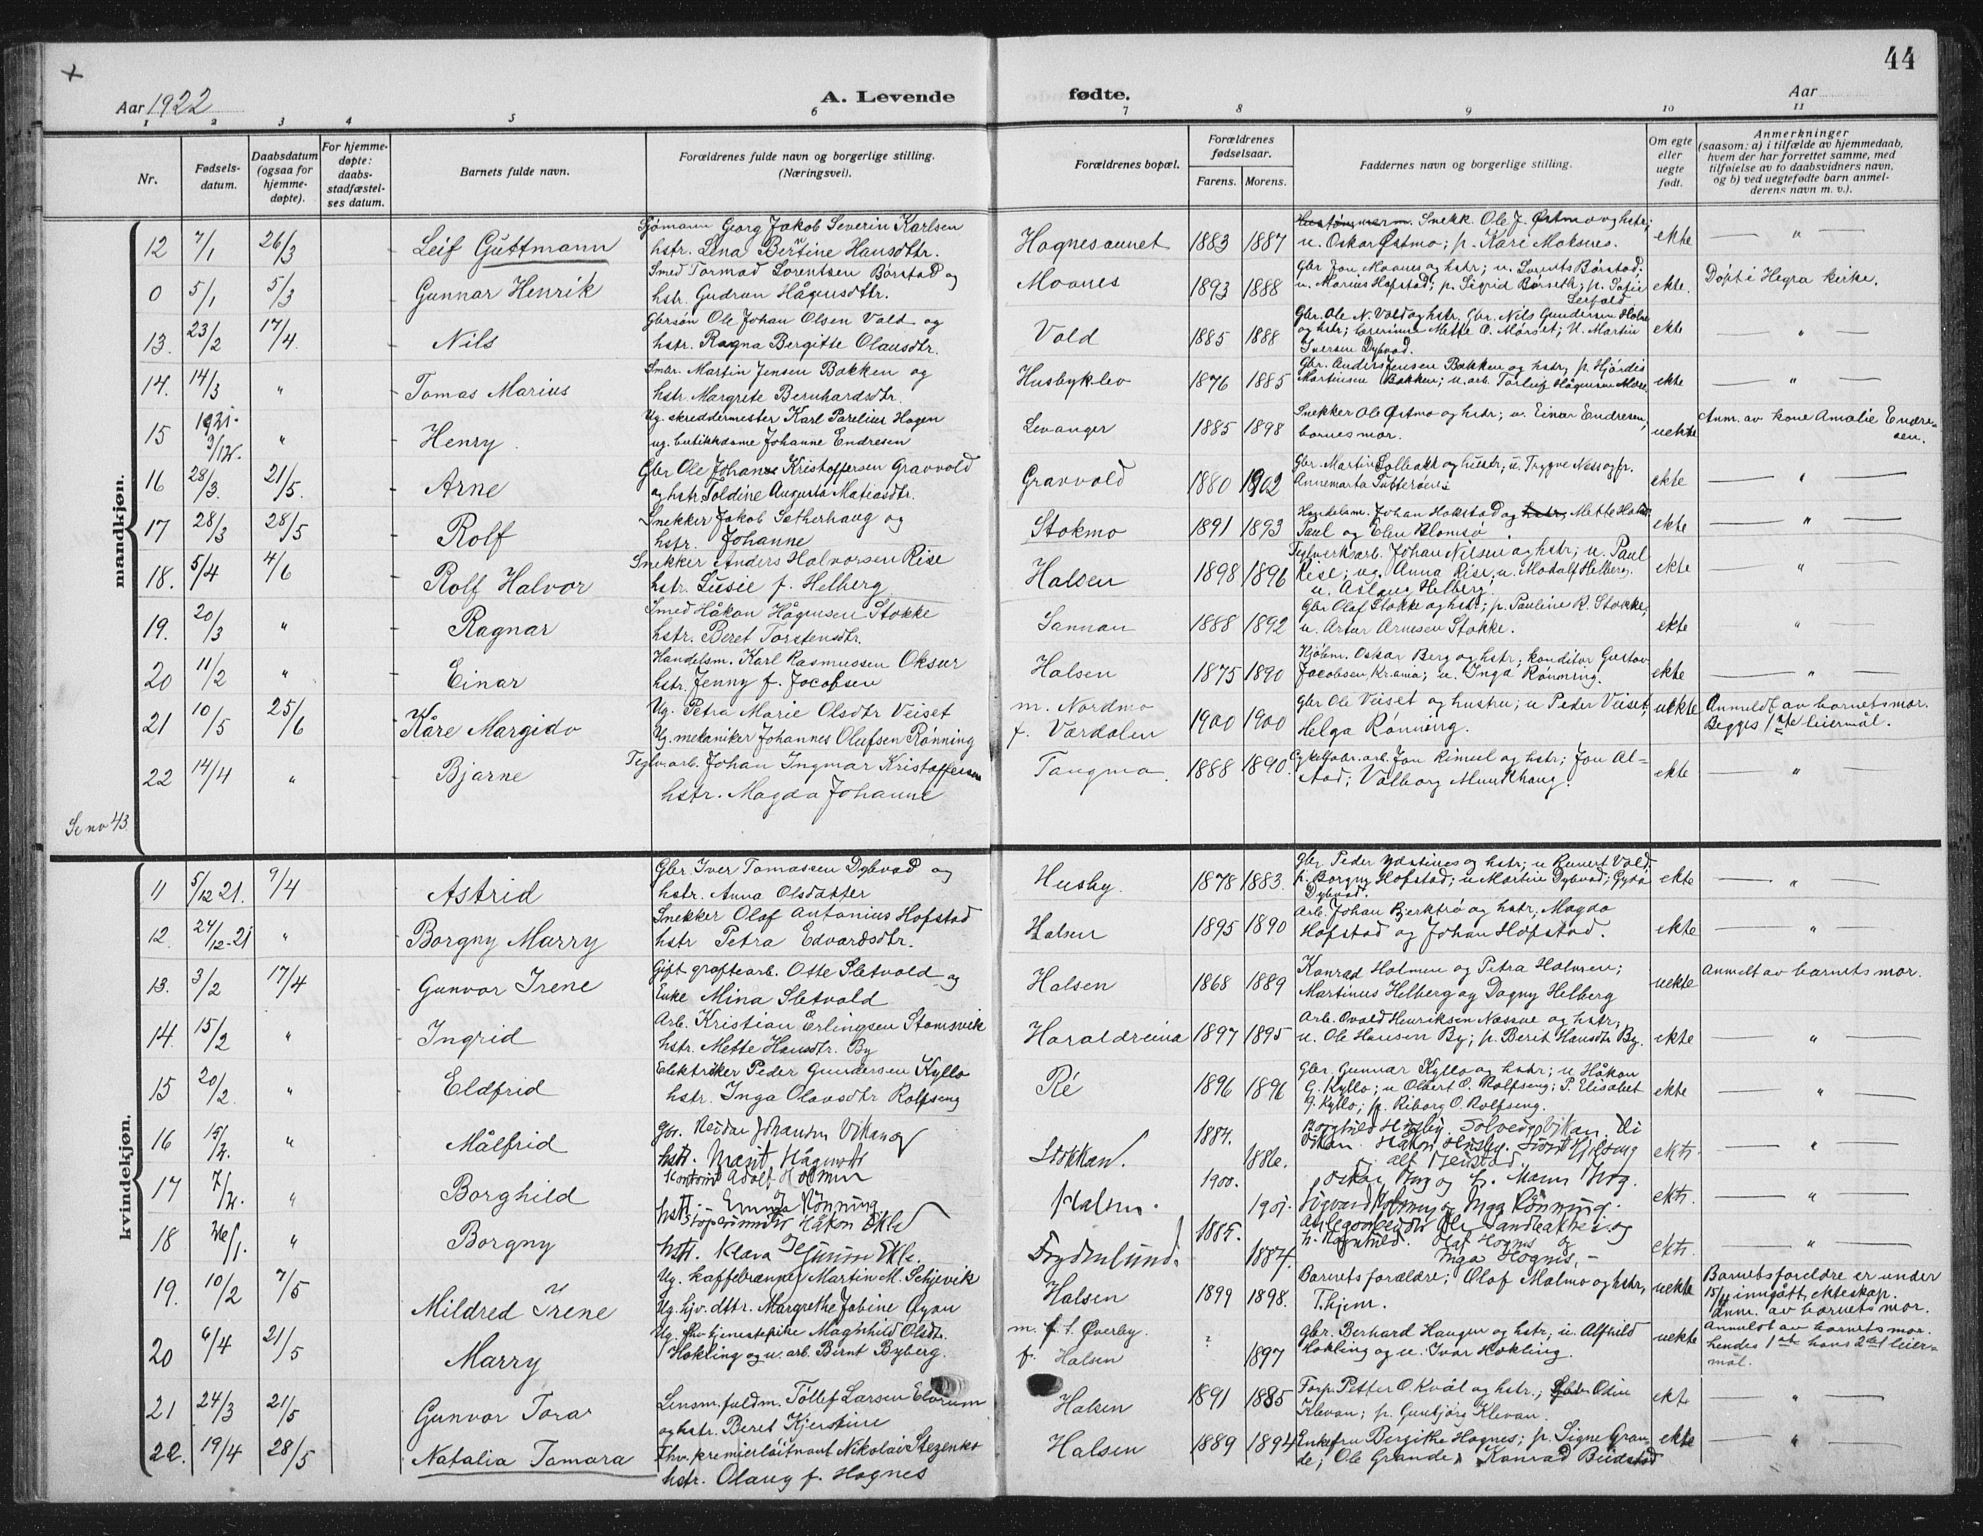 44
Aar 1922
A. Levende
fødte.
Aar
1 2 3 4 5 6 7 8 9 10 11
Nr.
Fødsels-
datum.
Daabsdatum
(ogsaa for
hjemme-
døpte).
For hjemme-
døpte:
daabs-
stadfæstel-
ses datum.
Barnets fulde navn.
Forældrenes fulde navn og borgerlige stilling.
(Næringsvei).
Forældrenes bopæl.
Forældrenes
fødselsaar.
Farens. Morens.
Faddernes navn og borgerlige stilling.
Om egte
eller
uegte
født.
Anmerkninger
(saasom: a) i tilfælde av hjemmedaab,
hvem der har forrettet samme, med
tilføielse av to daabsvidners navn,
og b) ved uegtefødte barn anmel-
derens navn m. v.).
mandkjøn.
12 7/1 26/3 Leif Guttmann
Sjømann Georg Jakob Severin Karlsen
hstr. Lena Birtine Hansdtr.
Hognesaunet 1883 1887
Snekk. Ole J. Østmo og hstr;
u. Oskar Østmo; p. Kare Moksnes.
ekte — " —
0 5/1 5/3 Gunnar Henrik
Smed Tormod Lorentsen Børstad og
hstr. Gudrun Hågensdtr.
Moanes 1893 1888
Gbr Jon Moanes og hstr; u. Lorents Børstad;
u. Marius Hofstad; p. Sigrid Børseth; p. Sofie
Leifald
ekte. Døpt i Hegra kirke.
13. 23/2 17/4. Nils
Gbrsøn Ole Johan Olsen Vold og
hstr. Ragna Bergitte Olausdtr.
Vold 1885 1888
Gbr. Ole N. Vold og hstr. Gbr. Nils Gundersen Holm
og hstr; Mette O. Mørset; U. Martin
Iversen Dybvad.
ekte — " —
14. 14/3 " Tomas Marius
Smbr. Martin Jensen Bakken og
hstr. Margrete Bernhardsdtr.
Husbyklev 1876 1885
Gbr. Anders Jensen Bakken og hstr, p. Hjördis
Martinsen Bakken; u. arb. Torleif Hågensen More.
ekte — " —
15 1921- 3/12. " Henry.
Ug. skreddermester Karl Parelius Hagen
ug. butikkdame Johanne Endresen
Levanger 1885 1898
Snekker Ole Østmo og hstr; u. Einar Endresen,
barnes mor.
uekte Anm. av kone Amalie Endre-
sen.
16 28/3. 21/5. Arne
Gbr Ole Johan Kristoffersen Gravvold
og hstr Toldine Augusta Matiasdtr.
Gravvold 1880 1902
Gbr. Martin Solbakk og hustr; u. Trygve Ness og pr.
Annemarta Sutterönes
ekte — " —
17 28/3 28/5 Rolf
Snekker Jakob Sætherhaug og
hstr. Johanne
Stokmo 1891 1893
Handelsm. Johan Hokstad og hstr, Mette Holm
Paul og Elen Blomsö
ekte — " —
18. 5/4 4/6 Rolf Halvor
Snekker Anders Halvorsen Rise
hstr. Lusie f. Helberg
Halsen 1898 1896
Teglverksarb. Johan Nilsen og hstr; u. Paul
Rise; ug. Anna Rise, u. Modulf Helberg.
u. Aslaug Helberg.
ekte — " —
19. 20/3 " Ragnar
Smed Håkon Hågensen Stokke
hstr. Beret Torstensdtr.
Sannan 1888 1892
Gbr Olaf Stokke og hstr; p. Pauline R. Stokke,
u. Artur Arnesen Stokke.
ekte " —
20 11/2 " Einar
Handelsm. Karl Rasmussen Oksur
hstr. Jenny f. Jacobsen
Halsen 1875 1890
Kjøbm. Oskar Berg og hstr; konditor Gustav
Jacobsen, Kr.ania; u. Inga Rønning.
ekte — " —
21 10/5 25/6 Kåre Margido
Ug. Petra Marie Olsdtr Veiset
Ug. mekaniker Johannes Olufsen Rønning
m. Nordmo
f. Værdalen 1900 1900
Gbr Ole Veiset og hustru; u Peder Veiset,
Helga Rønning.
uekte Anmeldt av barnets mor.
Begges 1ste leiermål.
22 14/4 " Bjarne
Teglv.arb. Johan Ingmar Kristoffersen
hstr. Magda Johanne
Tangmo. 1888 1890.
Cykelfabr.arb. Jon Rimul og hstr; Jon Al-
stad; Valborg Mundthaug.
ekte — " —
Se no 43
kvindekjøn.
11 5/12 21. 9/4 Astrid
Gbr Iver Tomassen Dybvad og
hstr. Anna Olsdatter
Husby. 1878 1883.
Gbr Peder Ydstines og hstr; u Runert Vold,
p. Borgny Hofstad; u Martin Dybvad; Gyda
Dybvad.
ekte — " —
12. 24/12-21 " Borgny Marry
Snekker Olaf Antonius Hofstad
hstr Petra Edvardsdtr.
Halsen 1895 1890
Arb. Johan Bjerktrø og hstr; Magda
Hofstad og Johan Hofstad.
ekte — " —
13. 3/2 17/4 Gunvor Irene
Gift grøftearb. Otte Sletvold og
Enke Mina Sletvold
Halsen 1868 1889
Konrad Holmen og Petra Holmen;
Martinus Helberg og Dagny Helberg
uekte Anmelt av barnets mor.
14. 15/2 " Ingrid
Arb. Kristian Erlingsen Stamsvik
hstr. Mette Hansdtr. By
Haraldreina 1897 1895
Arb. Ovald Henriksen Næssve og hstr;
u. Ole Hansen By; p. Berit Hansdtr By.
ekte — " —
15 20/2. " Eldfrid
Elektriker Peder Gundersen Kyllo
hstr. Inga Olavsdtr Rolfseng
Ré 1896 1896
Gbr. Gunnar Kyllo og hstr; u Håkon
G. Kyllo; u Olbert O. Rolfseng; P. Elisabet
G. Kyllo; p. Riborg O. Rolfseng.
ekte — " —
16 " Målfrid
Gbr. Reidar Johansen Vikan og
hstr. Marit Hågensdtr
Stokkan. 1884. 1886.
Borghild Husby. Solveig Vikan.
Vikan. Håkon Husby.
ekte — " —
17 7/2. " Borghild
Adolf Holmen
hstr. Emma Rönning
Halsen. 1900. 1901.
Oskar Krog og p. Marie Krog.
Sigvard Holmen og Inga Rönning.
ekte — " —
18 26/1. " Borgny
Håkon Ekle
hstr. Klara Ekle.
Frydenlund. 1885. 1884.
Ole Sandbakken og
h. Ragnhild. Olaf Hognes og
Inga Hognes.
ekte — " —
19. 10/2 7/5 Mildred Irene
Ug. kaffebrænner Martin M. Schjevik
Ug. hjv. dttr. Margrethe Jobine Øyan
Halsen 1899 1898.
Barnets forældre; Olaf Malmo og hstr,
T.hjem.
uekte Barnets foreldre er under
15/4 inngått ekteskap.
Anm. av barnets mor.
20 6/4 21/5 Marry
Ug. fhv tjenestepike Magnhild Olsdtr.
Hokling og u. arb. Bernt Byberg.
m. f. t. Øverby.
f. Halsen ? 1897
Gbr. Berhard Haugen og hstr; u. Alfhild
Hokling og u. Ivar Hokling.
uekte Anmeldt av barnets mor.
hendes 1ste hans 2det leier-
mål.
21 24/3 21/5 Gunvor Tora
Lensm.fuldm. Tollef Larsen Elvrum
og hstr. Beret Kjerstine
Halsen 1891 1885
Forp. Petter O. Kvål og hstr.; Gbr. Odin
Klevan; p. Gunbjørg Klevan.
ekt — " —
22. 19/4 28/5 Natalia Tamara
Fhv. premierløitnant Nikolai Stezenko
hstr. Olaug f. Hognes
Halsen 1889 1894
Enkefru Bergithe Hognes; p. Signe Gran-
de; Ole Grande, Konrad Budstad
ekte — " —